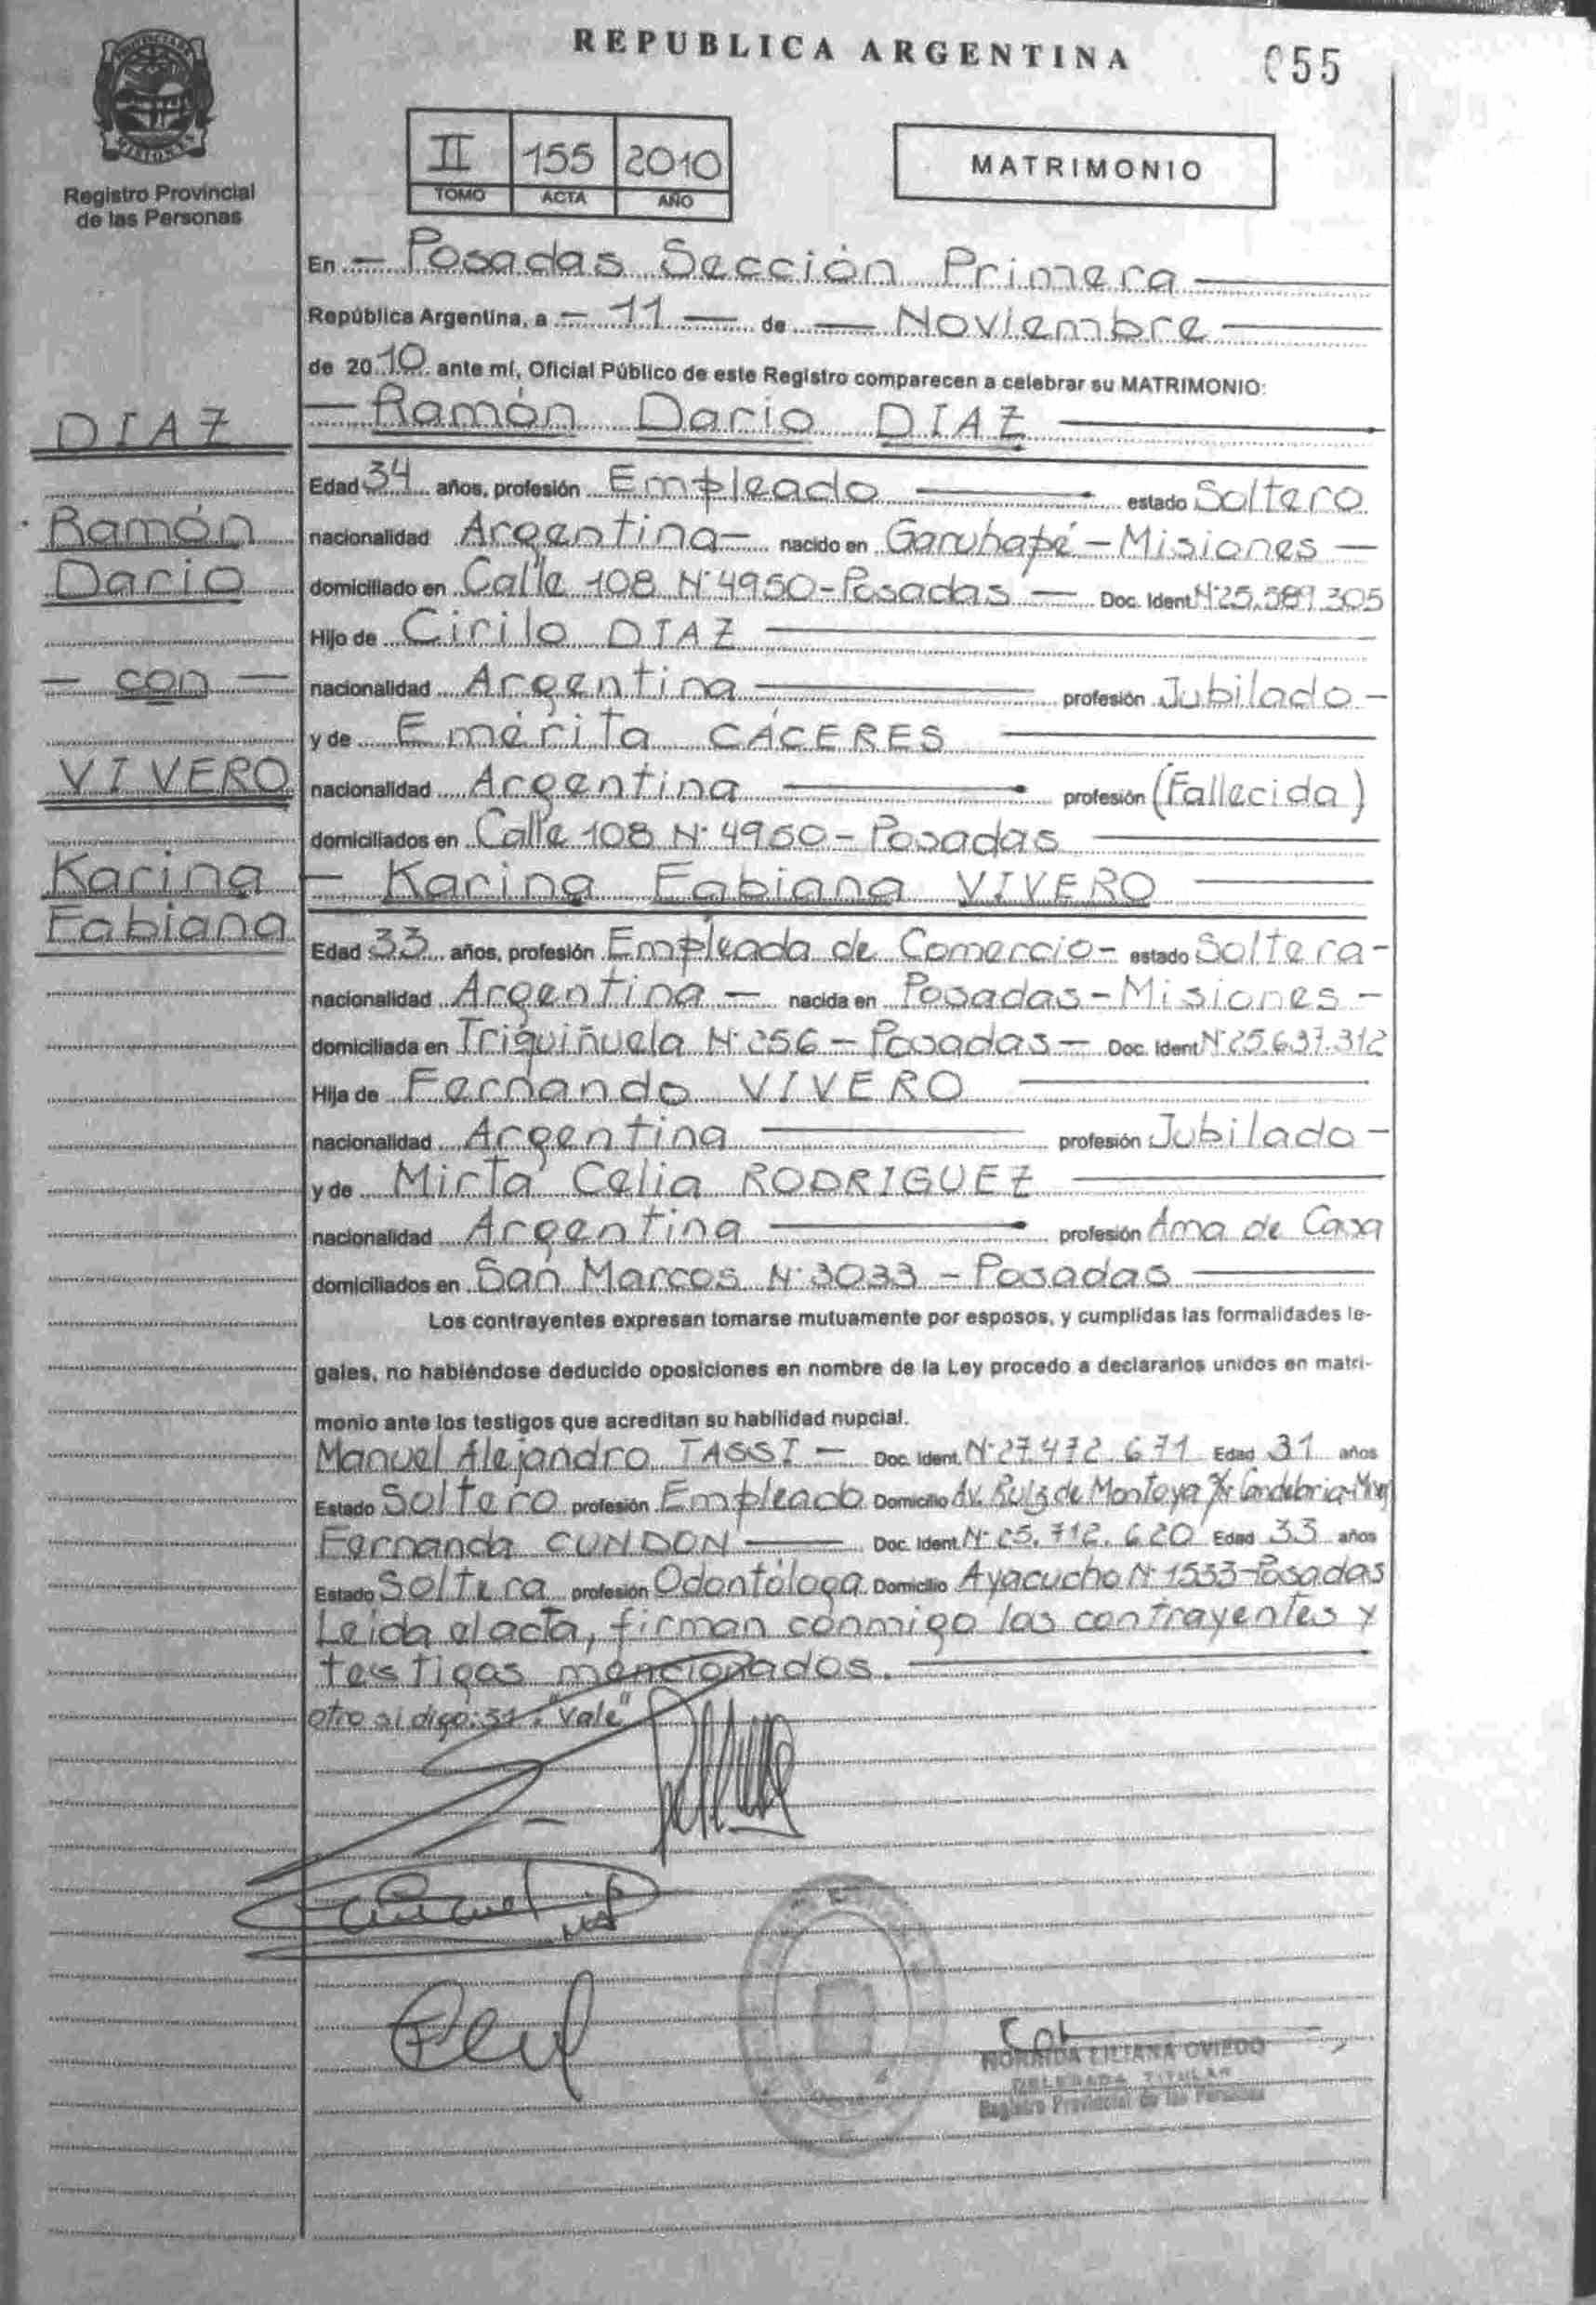 REPUBLICA ARGENTINA
055
Registro Provincial
de las Personas
II 155 2010
TOMO ACTA AÑO
MATRIMONIO
En – Posadas Sección Primera
República Argentina, a – 11 — de — Noviembre
de 2010 ante mí, Oficial Público de este Registro comparecen a celebrar su MATRIMONIO:
– Ramón Dario DIAZ
Edad 34 años, profesión Empleado estado Soltero
nacionalidad Argentina – nacido en Garuhapé – Misiones –
domiciliado en Calle 108 N° 4950 – Posadas — Doc. Ident. N° 25.589.305
Hijo de Cirilo DIAZ
nacionalidad Argentina profesión Jubilado –
y de Emérita CÁCERES
nacionalidad Argentina profesión (Fallecida)
domiciliados en Calle 108 N° 4950 – Posadas
– Karina Fabiana VIVERO
Edad 33 años, profesión Empleada de Comercio – estado Soltera –
nacionalidad Argentina – nacida en Posadas – Misiones –
domiciliada en Triquiñuela N° 256 – Posadas – Doc. Ident N° 25.637.312
Hija de Fernando VIVERO
nacionalidad Argentina profesión Jubilado –
y de Mirta Celia RODRIGUEZ
nacionalidad Argentina profesión Ama de Casa
domiciliados en San Marcos N° 3033 – Posadas
Los contrayentes expresan tomarse mutuamente por esposos, y cumplidas las formalidades le-
gales, no habiéndose deducido oposiciones en nombre de la Ley procedo a declararlos unidos en matri-
monio ante los testigos que acreditan su habilidad nupcial.
Manuel Alejandro TASSI – Doc. Ident. N° 27.472.671 Edad 31 años
Estado Soltero profesión Empleado Domicilio Av. Ruiz de Montoya Candelaria-
Fernanda CUNDON — Doc. Ident N° 25.712.620 Edad 33 años
Estado Soltera profesión Odontóloga Domicilio Ayacucho N° 1533-Posadas
Leida el acta, firman conmigo los contrayentes y
testigos mencionados.
otro si digo: 31. "Vale"
LILIANA OVIEDO
DELEGADA TITULAR
Registro Provincial de las Personas
DIAZ
Ramón
Dario
– con –
VIVERO
Karina
Fabiana